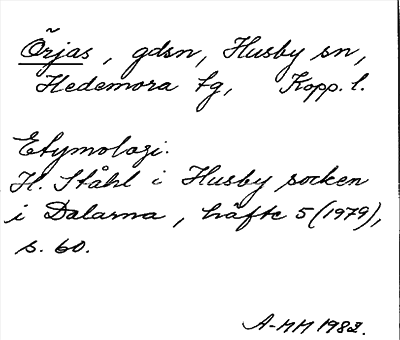 Örjas, gdsn, Husby sn,
Hedemora tg, Kopp. l.
Etymologi.
H. Ståhl i Husby socken
i Dalarna, häfte 5 (1979),
s. 60.
A-MM 1982.